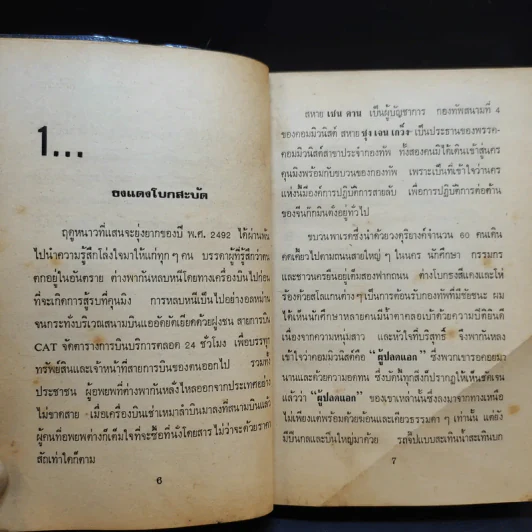 1...
ธงแดงโบกสะบัด
ฤดูหนาวที่แสนจะยุ่งยากของปี พ.ศ. 2492 ได้ผ่านพ้น
ไปนำความรู้สึกโล่งใจมาให้แก่ทุก ๆ คน บรรดาผู้ที่รู้สึกว่าตน
ตกอยู่ในอันตราย ต่างพากันหลบหนีโดยทางเครื่องบินไปก่อน
ที่จะเกิดการสู้รบที่คุนมิง การหลบหนีเป็นไปอย่างอลหม่าน
จนกระทั่งบริเวณสนามบินแออัดยัดเยียดด้วยฝูงชน สายการบิน
CAT จัดตารางการบินบริการตลอด 24 ชั่วโมง เพื่อบรรทุก
ทรัพย์สินและเจ้าหน้าที่สายการบินของตนออกไป รวมทั้ง
ประชาชน ผู้อพยพที่ต่างพากันหลั่งไหลออกจากประเทศอย่าง
ไม่ขาดสาย เมื่อเครื่องบินเช่าเหมาลำบินมาลงที่สนามบินแล้ว
ผู้คนที่อพยพต่างก็เต็มใจที่จะซื้อที่นั่งโดยสาร ไม่ว่าจะด้วยราคา
สักเท่าใดก็ตาม
6
สหาย เชน ดาน เป็นผู้บัญชาการ กองทัพสนามที่ 4
ของคอมมิวนิสต์ สหาย ซุง เจน เกว็ง เป็นประธานของพรรค-
คอมมิวนิสต์สาขาประจำกองทัพ ทั้งสองคนมิได้เดินเข้าสู่นคร
คุนมิงพร้อมกับขบวนของกองทัพ เพราะเป็นที่เข้าใจว่านคร
แห่งนี้มีองค์การปฏิบัติการสายลับ เพื่อการปฏิบัติการต่อต้าน
ของจีนก๊กมินตั๋งอยู่ทั่วไป
ขบวนพาเรดซึ่งนำด้วยวงดุริยางค์จำนวน 60 คนเดิน
คดเคี้ยวไปตามถนนสายใหญ่ ๆ ในนคร นักศึกษา กรรมกร
และชาวนครยืนอยู่เต็มสองฟากถนน ต่างโบกธงสีแดงและโห่
ร้องด้วยสโลแกนต่าง ๆ เป็นการต้อนรับกองทัพที่มีชัยชนะ ผม
ได้เห็นนักศึกษาหลายคนมีน้ำตาคลอเบ้าด้วยความปีติยินดี
เนื่องจากความหนุ่มสาว และหัวใจที่บริสุทธิ์ จึงพากันหลง
เข้าใจว่าคอมมิวนิสต์คือ “ผู้ปลดแอก” ซึ่งพวกเขารอคอยมา
นานและด้วยความอดทน ซึ่งบัดนี้ทุกสิ่งก็ปรากฏให้เห็นชัดเจน
แล้วว่า “ผู้ปลดแอก” ของเขาเหล่านั้นซึ่งลงมาจากทางเหนือ
ไม่เพียงแต่พร้อมด้วยฆ้อนและเคียวธรรมดา ๆ เท่านั้น แต่ยัง
มีปืนกลและปืนใหญ่มาด้วย รถจี๊ปแบบสะเทินน้ำสะเทินบก
7